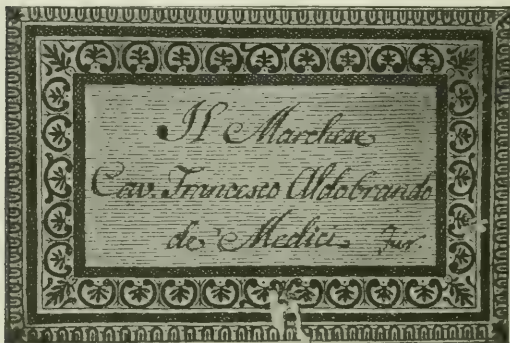 Il Marchese
Cav. Francesco Aldobrando
de' Medici